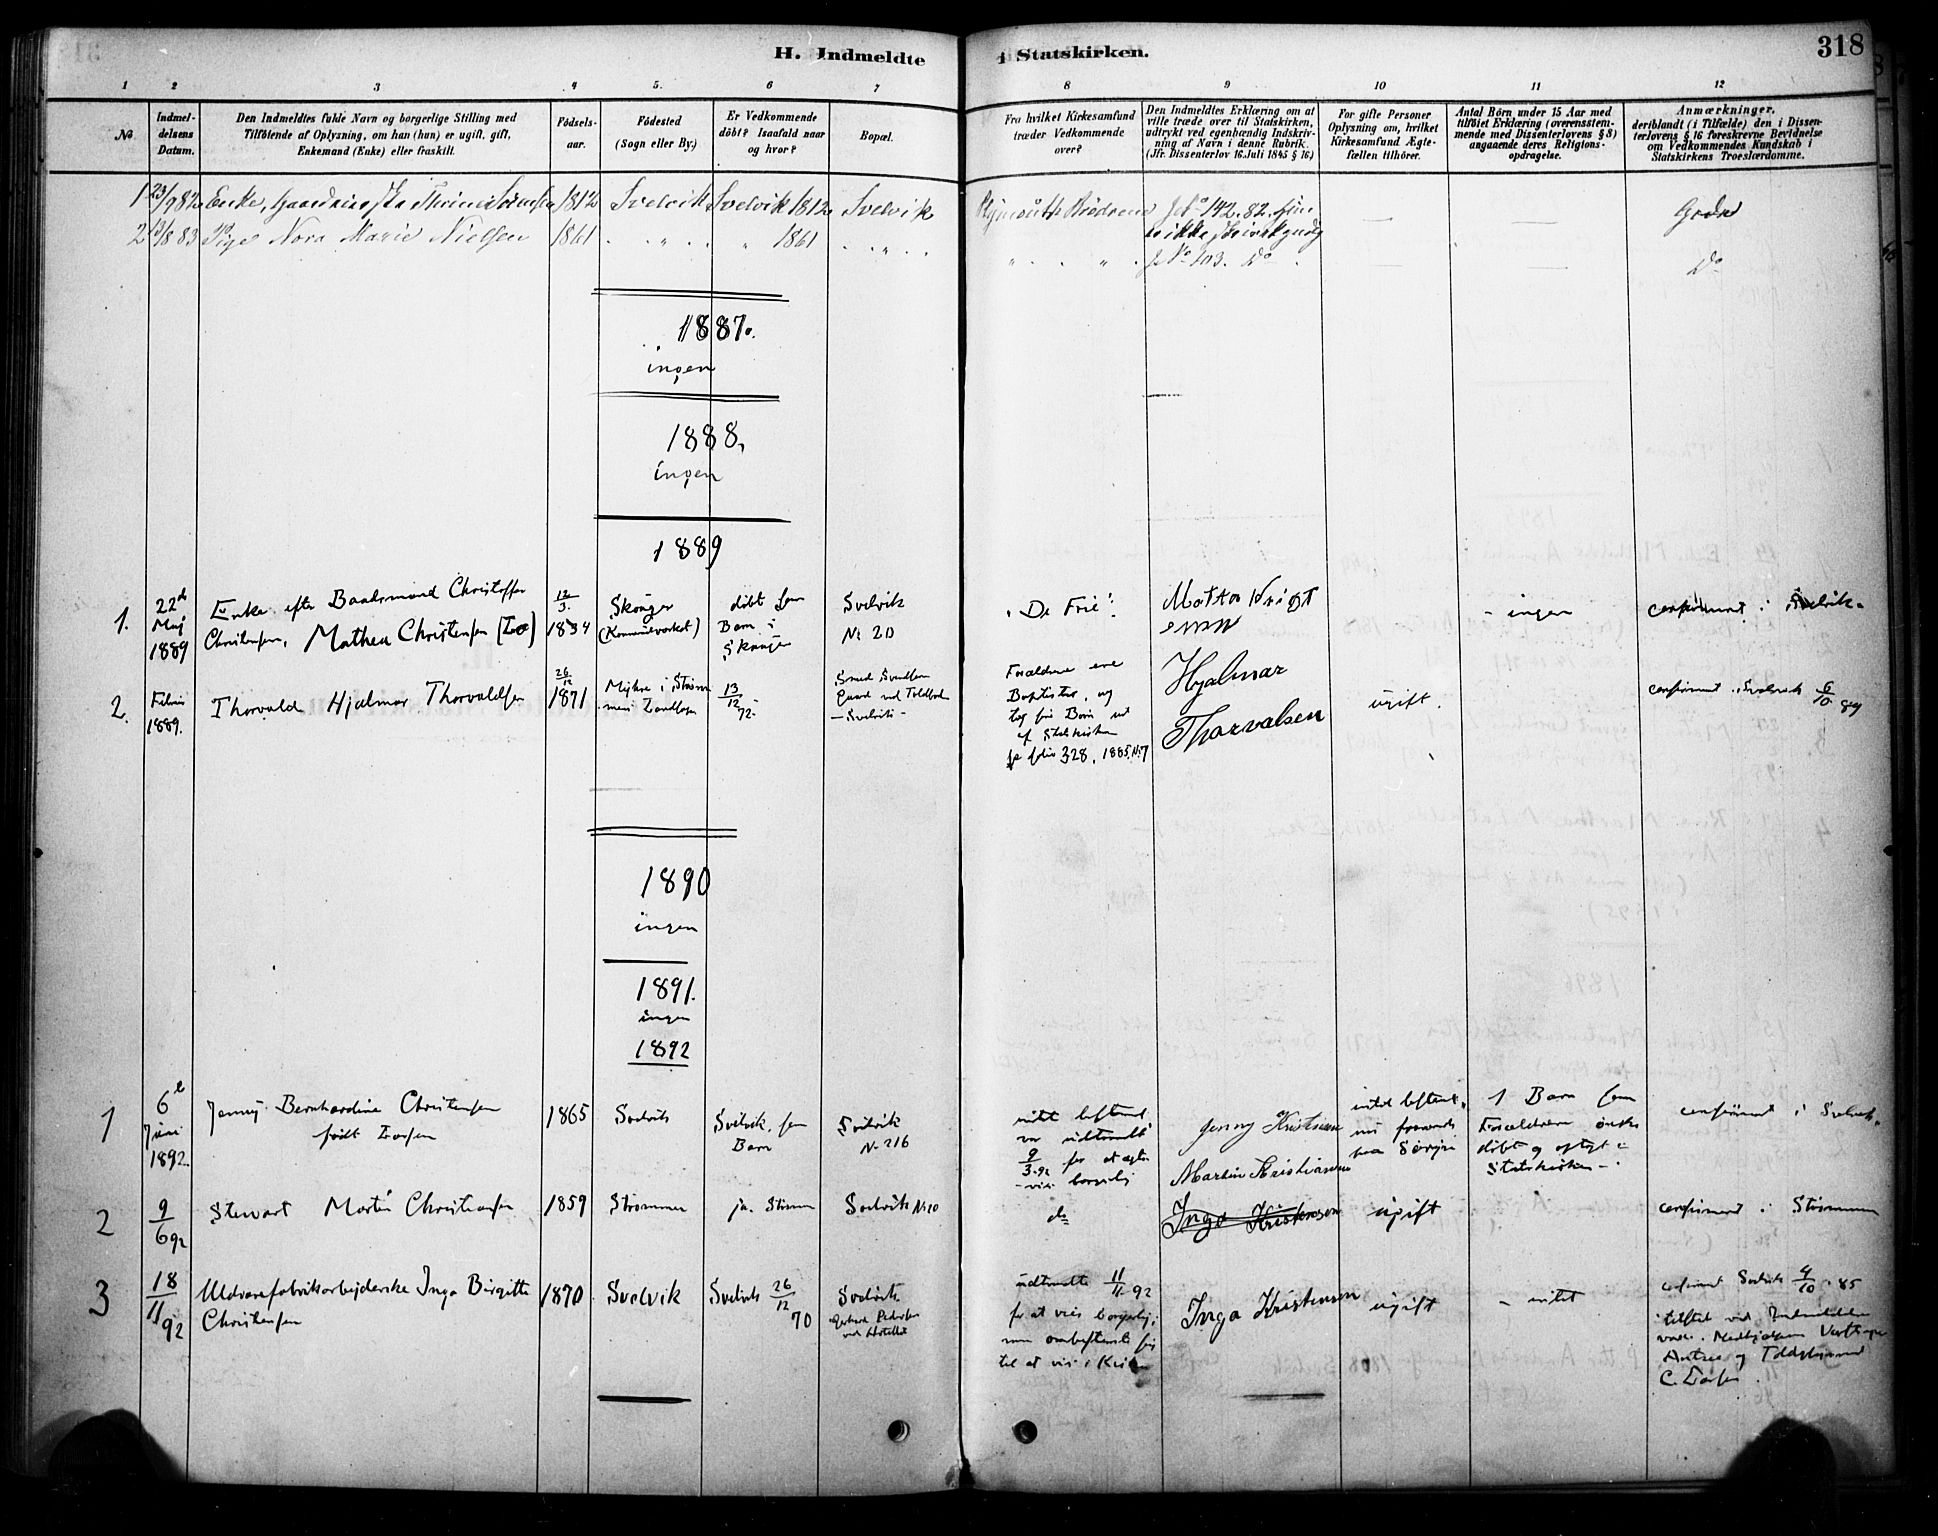 H. Indmeldte i Statskirken. 318
1 2 3 4 5. 6 7 8 9 10 11 12
No.
Indmel-
delsens
Datum.
Den Indmeldtes fulde Navn og borgerlige Stilling med
Tilføiende af Oplysning, om han (hun) er ugift, gift,
Enkemand (Enke) eller fraskilt.
Fødsels-
aar.
Fødested
(Sogn eller By.)
Er Vedkommende
døbt? Isaafald naar
og hvor?
Bopæl.
Fra hvilket Kirkesamfund
træder Vedkommende
over?
Den Indmeldtes Erklæring om at
ville træde over til Statskirken,
udtrykt ved egenhændig Indskriv-
ning af Navn i denne Rubrik.
(Jfr. Dissenterlov 16. Juli 1845 § 16)
For gifte Personer
Oplysning om, hvilket
Kirkesamfund Ægte-
fællen tilhører.
Antal Børn under 15 Aar med
tilføiet Erklæring (overensstem-
mende med Dissenterlovens § 8)
angaaende deres Religions-
opdragelse.
Anmærkninger,
deriblandt (i Tilfælde) den i Dissen-
terlovens § 16 foreskrevne Bevidnelse
om Vedkommendes Kundskab i
Statskirkens Troeslærdomme.
1 23/9 82 Enke, 1812 Svelvik Svelvik 1812 Svelvik Brødrene 142. 82. — — Gode
2 83 Pige Nora Marie Nielsen 1861 " " 1861 " " " 103. Do — — Do
1887.
ingen
1888.
ingen
1889
1. 22de Maj 1889
Enke efter Baadsmand Christoffer
Christensen, Mathea Christensen
12/3. 1834
Skoger
døbt som
Barn i
Skoger
Svelvik
No 20
"De Frie".
- ingen
confirmeret i Svelvik.
2. 1889.
Thorvald Hjalmar Thorvaldsen
26/12 1871
13/12 72.
- Svelvik -
Forældrene ere
Baptister, og
tog sine Børn ud
af Statskirken
folio 328, 1885, No 7
Hjalmar
Thorvalsen
ugift.
confirmeret Svelvik 6/10 89
1890
ingen
1891.
ingen
1892
1 6te Juni 1892.
Jenny Bernhardine Christensen
født Larsen
1865
Svelvik
Svelvik, som
Barn
Svelvik
No 216
var udtraadt
9/3.92 for at
borgerlig
Jenny Kristiansen
Martin Kristiansen
1 Barn som
Forældrene ønske
døbt og opdraget i
Statskirken -.
confirmeret i Svelvik.
2 9/6 92
Stewart Martin Christiansen
1859
Strømmen
ja. Strømm
Svelvik No 10
do
Inga Kristensen
ugift
confirmeret i Strømmen
3 18/11 92
Uldvarefabrikarbejderske Inga Birgitte
Christensen
1870
Svelvik
Svelvik 26/12 70
Svelvik.
ved Hotellet
udtraadte 11/11 92
for at vies borgerlig,
til at vies i Kirken
Inga Kristensen
ugift
- intet
confirmeret Svelvik 4/10 85
tilsted ved Indmeldelsen
C. Larsen.